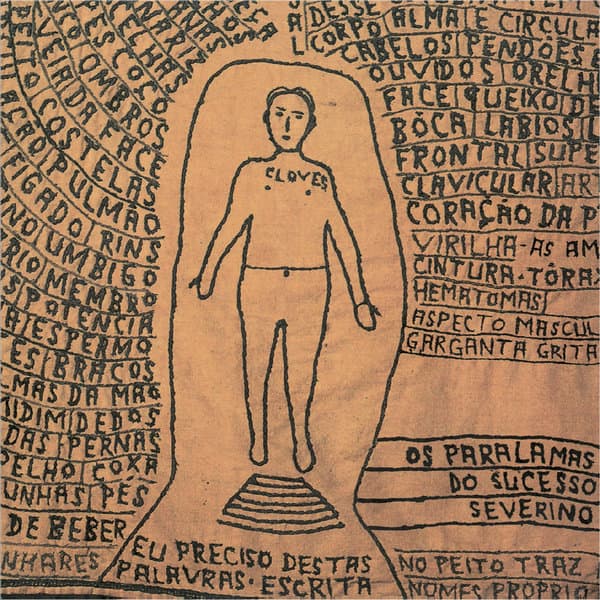 ESA
HOS
NARIZ
NAS
ELHAS
PES COÇO
VEIA DA FACE
OMBROS
PEITO COSTELAS
AÇÃO PULMÃO
FIGADO RINS
NO UMBIGO
RIO MEMBRO
S POTENCIA
A ESPERMO
ES BRAÇOS
LMAS DA MÃO
MIDIM DEDOS
DAS PERNAS
ELHO COXA
UNHAS PÉS
DE BEBER
NHARES
AL DESSE
CORPO ALMA E CIRCULA
CABELOS PENDÕES
OUVIDOS ORELH
FACE QUEIXO D
BÔCA LABIOS L
FRONTAL SUPE
CLAVICULAR AR
CORAÇÃO DA P
VIRILHA-AS AM
CINTURA-TÓRAX
HEMATOMAS
ASPECTO MASCUL
GARGANTA GRITA
CLOVES
OS PARALAMAS
DO SUCESSO
SEVERINO
EU PRECISO DESTAS
PALAVRAS. ESCRITA
NO PEITO TRAZ
NOMES PROPRIO